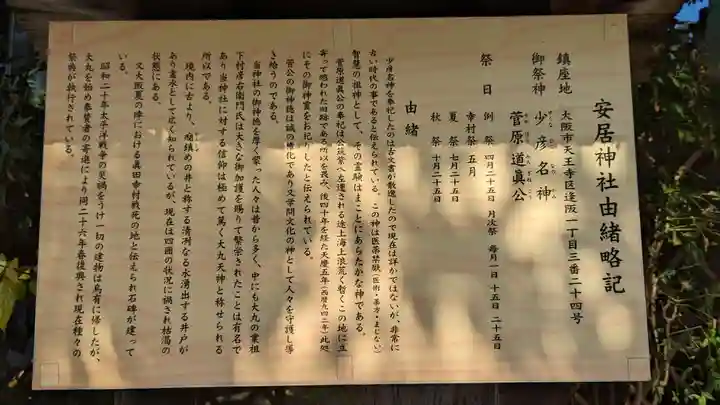 安居神社由緒略記
鎮座地　大阪市天王寺区逢阪一丁目三番二十四号
御祭神　少彦名神
すくなひこなのかみ
菅原道眞公
すがわらみちざねこう
祭　日　例　祭　四月二十五日　月次祭　毎月一日　十五日　二十五日
幸村祭　五月
夏　祭　七月二十五日
秋　祭　十月二十五日
由　緒
少彦名神を奉祀したのは古文書が散逸したので現在は詳かではないが、非常に
古い時代の事であると伝えられている。この神は医薬禁厭（医術・薬方・まじない）
智慧の祖神として、その霊験はまことにあらたかな神である。
菅原道眞公の奉祀は公筑紫へ左遷される途上海上浪荒く暫くこの地に立
寄って憩われた旧跡である所以を畏み、後四十年を経た天慶五年（西暦九四二年）此処
にその御神霊をお祀りしたと伝えられている。
菅公の御神徳は誠の権化であり又学問文化の神として人々を守護し導
き給うのである。
当神社の御神徳を厚く蒙った人々は昔から多く、中にも大丸の業祖
下村彦右衛門氏は大きな御加護を賜りて繁栄されたことは有名で
あり当神社に対する信仰は極めて篤く大丸天神と称せられる
所以である。
境内に古より、癇鎮めの井と称する清冽なる水湧出する井戸が
あり霊水として広く知られているが、現在は四囲の状況に禍され枯渇の
状態にある。
又大阪夏の陣における眞田幸村戦死の地と伝えられ石碑が建って
いる。
昭和二十年太平洋戦争の災禍をうけ一切の建物は烏有に帰したが、
大丸を始め奉賛者の寄進により同二十六年春復興され現在種々の
祭典が執行されている。